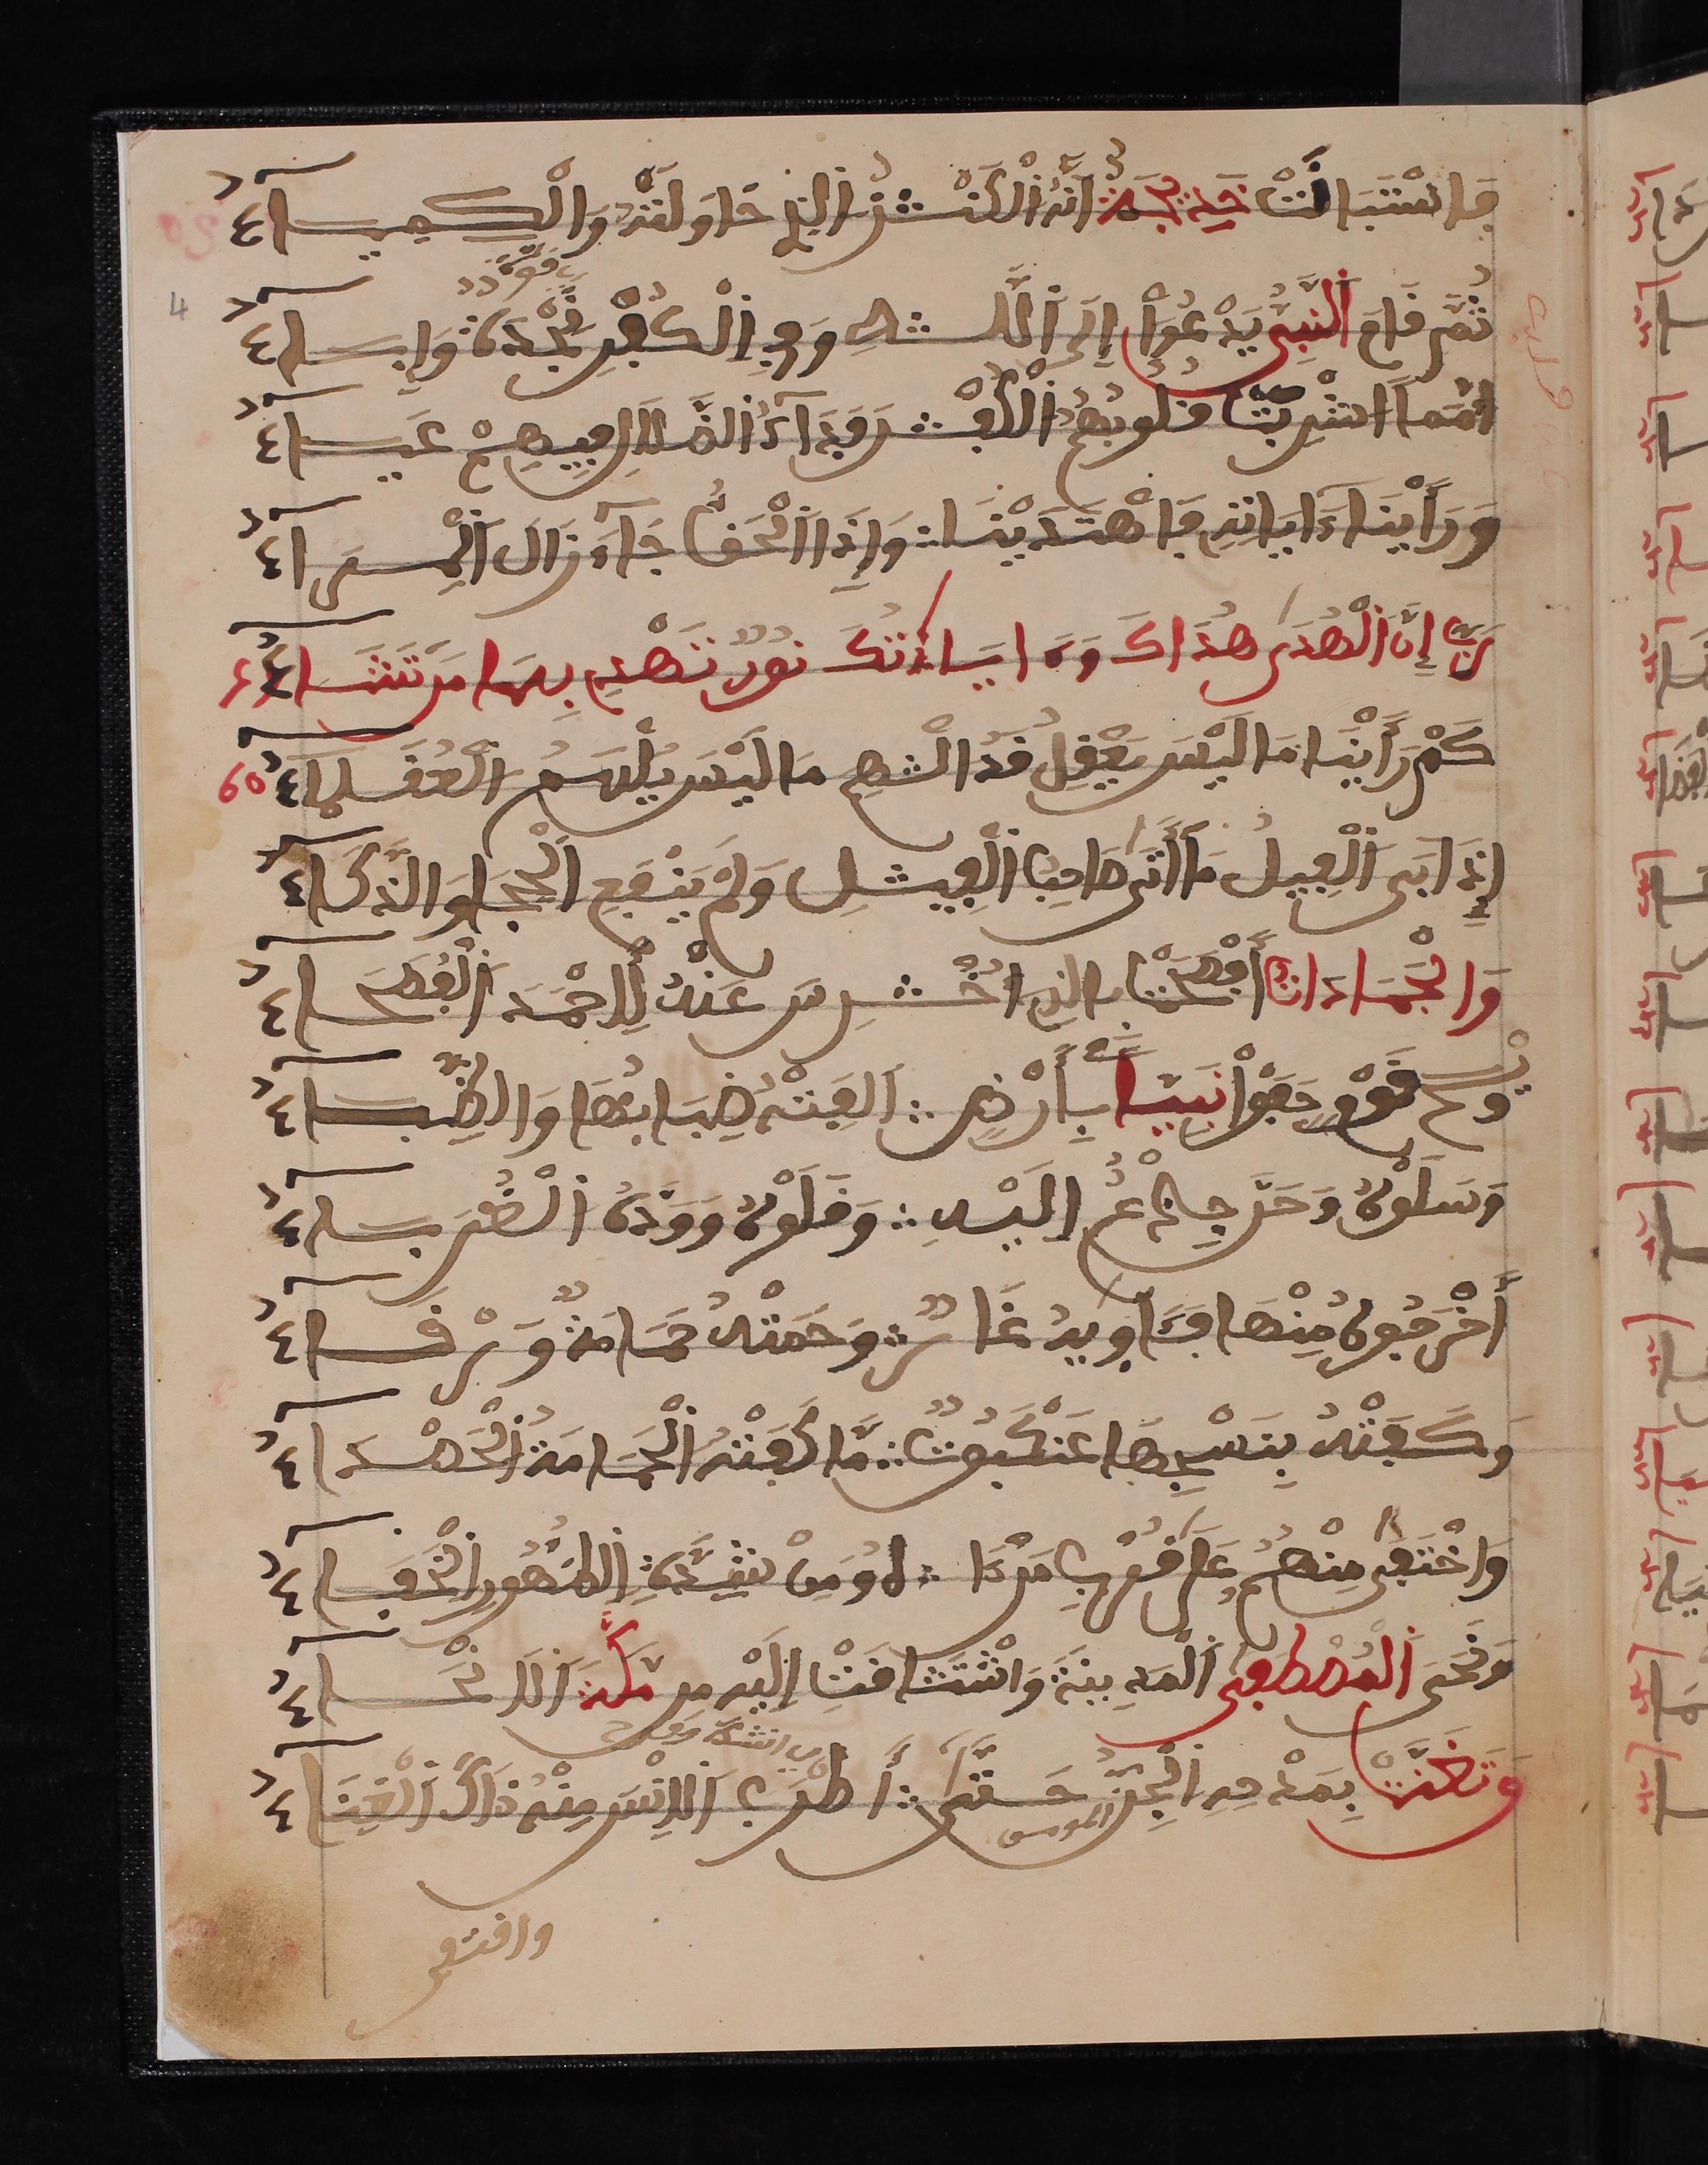 فَاسْتَبَانَتْ خَدِيجَةٌ أَنَّهُ الْكَنْـ ∴ ـزُ الذِي حَاوَلَتْهُ وَالْكِيمِيَاءُ
ثُمَّ قَامَ النَّبِيُّ يَدْعُوا إِلَى اللَّـ ∴ ـهِ وَفِي الْكُفْرِ نَجْدَةٌ وَإِبَاءُ
أُمَمًا أُشْرِبَتْ قُلُوبُهُمُ الْكُفْـ ∴ ـرَ فَدَاءُ الضَّلَالِ فِيهِمْ عَيَاءُ
وَرَأَيْنَا ءَايَاتِهِ فَاهْتَدَيْنَا ∴ وَإِذَا الْحَقُّ جَاءَ زَالَ الْمِرَاءُ
رَبِّ إِنَّ الْهُدَى هُدَاكَ وَءَايَاتُكَ نُورٌ تَهْدِي بِهَا مَن تَشَاءُ
كَمْ رَأَيْنَا مَا لَيْسَ يَعْقِلُ قَدْ الْهِمَ مَا لَيْسَ يُلْهَمُ الْعُقَلَاءُ
60
إِذَ ابَى الْفِيلُ مَا أَتَى صَاحِبُ الْفِيـ ∴ ـلِ وَلَمْ يَنْفَعِ الْحِجَا وَالذَّكَاءُ
وَالْجَمَادَاتُ أَفْصَحَتْ بِالذِي أُخْـ ∴ ـرِسَ عَنْهُ لِأَحْمَدَ الْفُصَحَاءُ
وَيْحَ قَوْمٍ جَفَوْا نَبِيًّا بِأَرْضٍ ∴ أَلِفَتْهُ ضِبَابُهَا وَالظِّبَاءُ
وَسَلَوْهُ وَحَنَّ جِذْعٌ إِلَيْهِ ∴ وَقَلَوْهُ وَوَدَّهُ الْغُرَبَاءُ
أَخْرَجُوهُ مِنْهَا وَءَاوِيهُ غَارٌ ∴ وَحَمَتْهُ حَمَامَةٌ وَرْقَاءُ
وَكَفَتْهُ بِنَسْجِهَا عَنْكَبُوتٌ ∴ مَّا كَفَتْهُ الْحَمَامَةُ الْحَصْدَاءُ
وَاخْتَفَى مِنْهُمُ عَلَى قُرْبِ مَرْءَا ∴ هُ وَمِنْ شِدَّةِ الظُّهُورِ الْخَفَاءُ
وَنَحَى الْمُصْطَفَى الْمَدِينَةَ وَاشْتَاقَتْ إِلَيْهِ مِن مَّكَّةَ الَانْحَاءُ
وَتَغَنَّتْ بِمَدْحِهِ الْجِنُّ حَتَّى ∴ أَطْرَبَ الِانْسَ مِنْهُ ذَاكَ الْغِنَاءُ
وافتفى
4